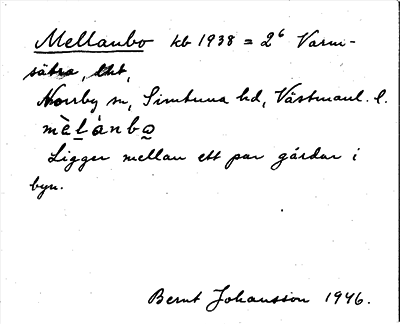 Mellanbo kb 1938 = 2⁶ Varm-
sätra,
Norrby sn, Simtuna hd, Västmanl. l.
mèlánbo
Ligger mellan ett par gårdar i
byn.
Bernt Johansson 1946.